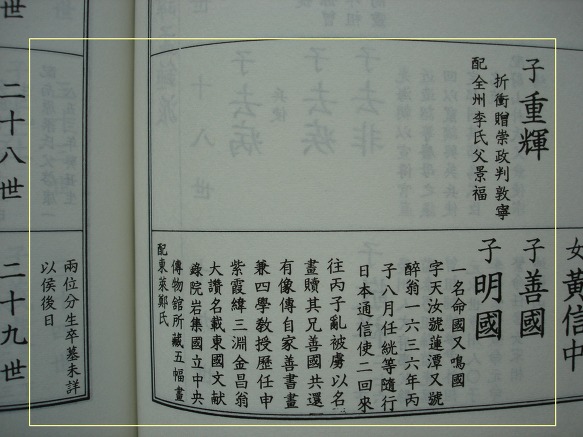 子重輝
折衝贈崇政判敦寧
配全州李氏父景福
女黃信中
子善國
子明國
一名命國又鳴國
字天汝號蓮潭又號
醉翁一六三六年丙
子八月任絖等隨行
日本通信使二回來
往丙子亂被虜以名
畫贖其兄善國共還
有像傳自家善書畫
兼四學敎授歷任申
紫霞緯三淵金昌翁
大讚名載東國文献
錄院岩集國立中央
傳物館所藏五幅畫
配東萊鄭氏
世
二十八世
二十九世
兩位分生卒墓未詳
以侯後日